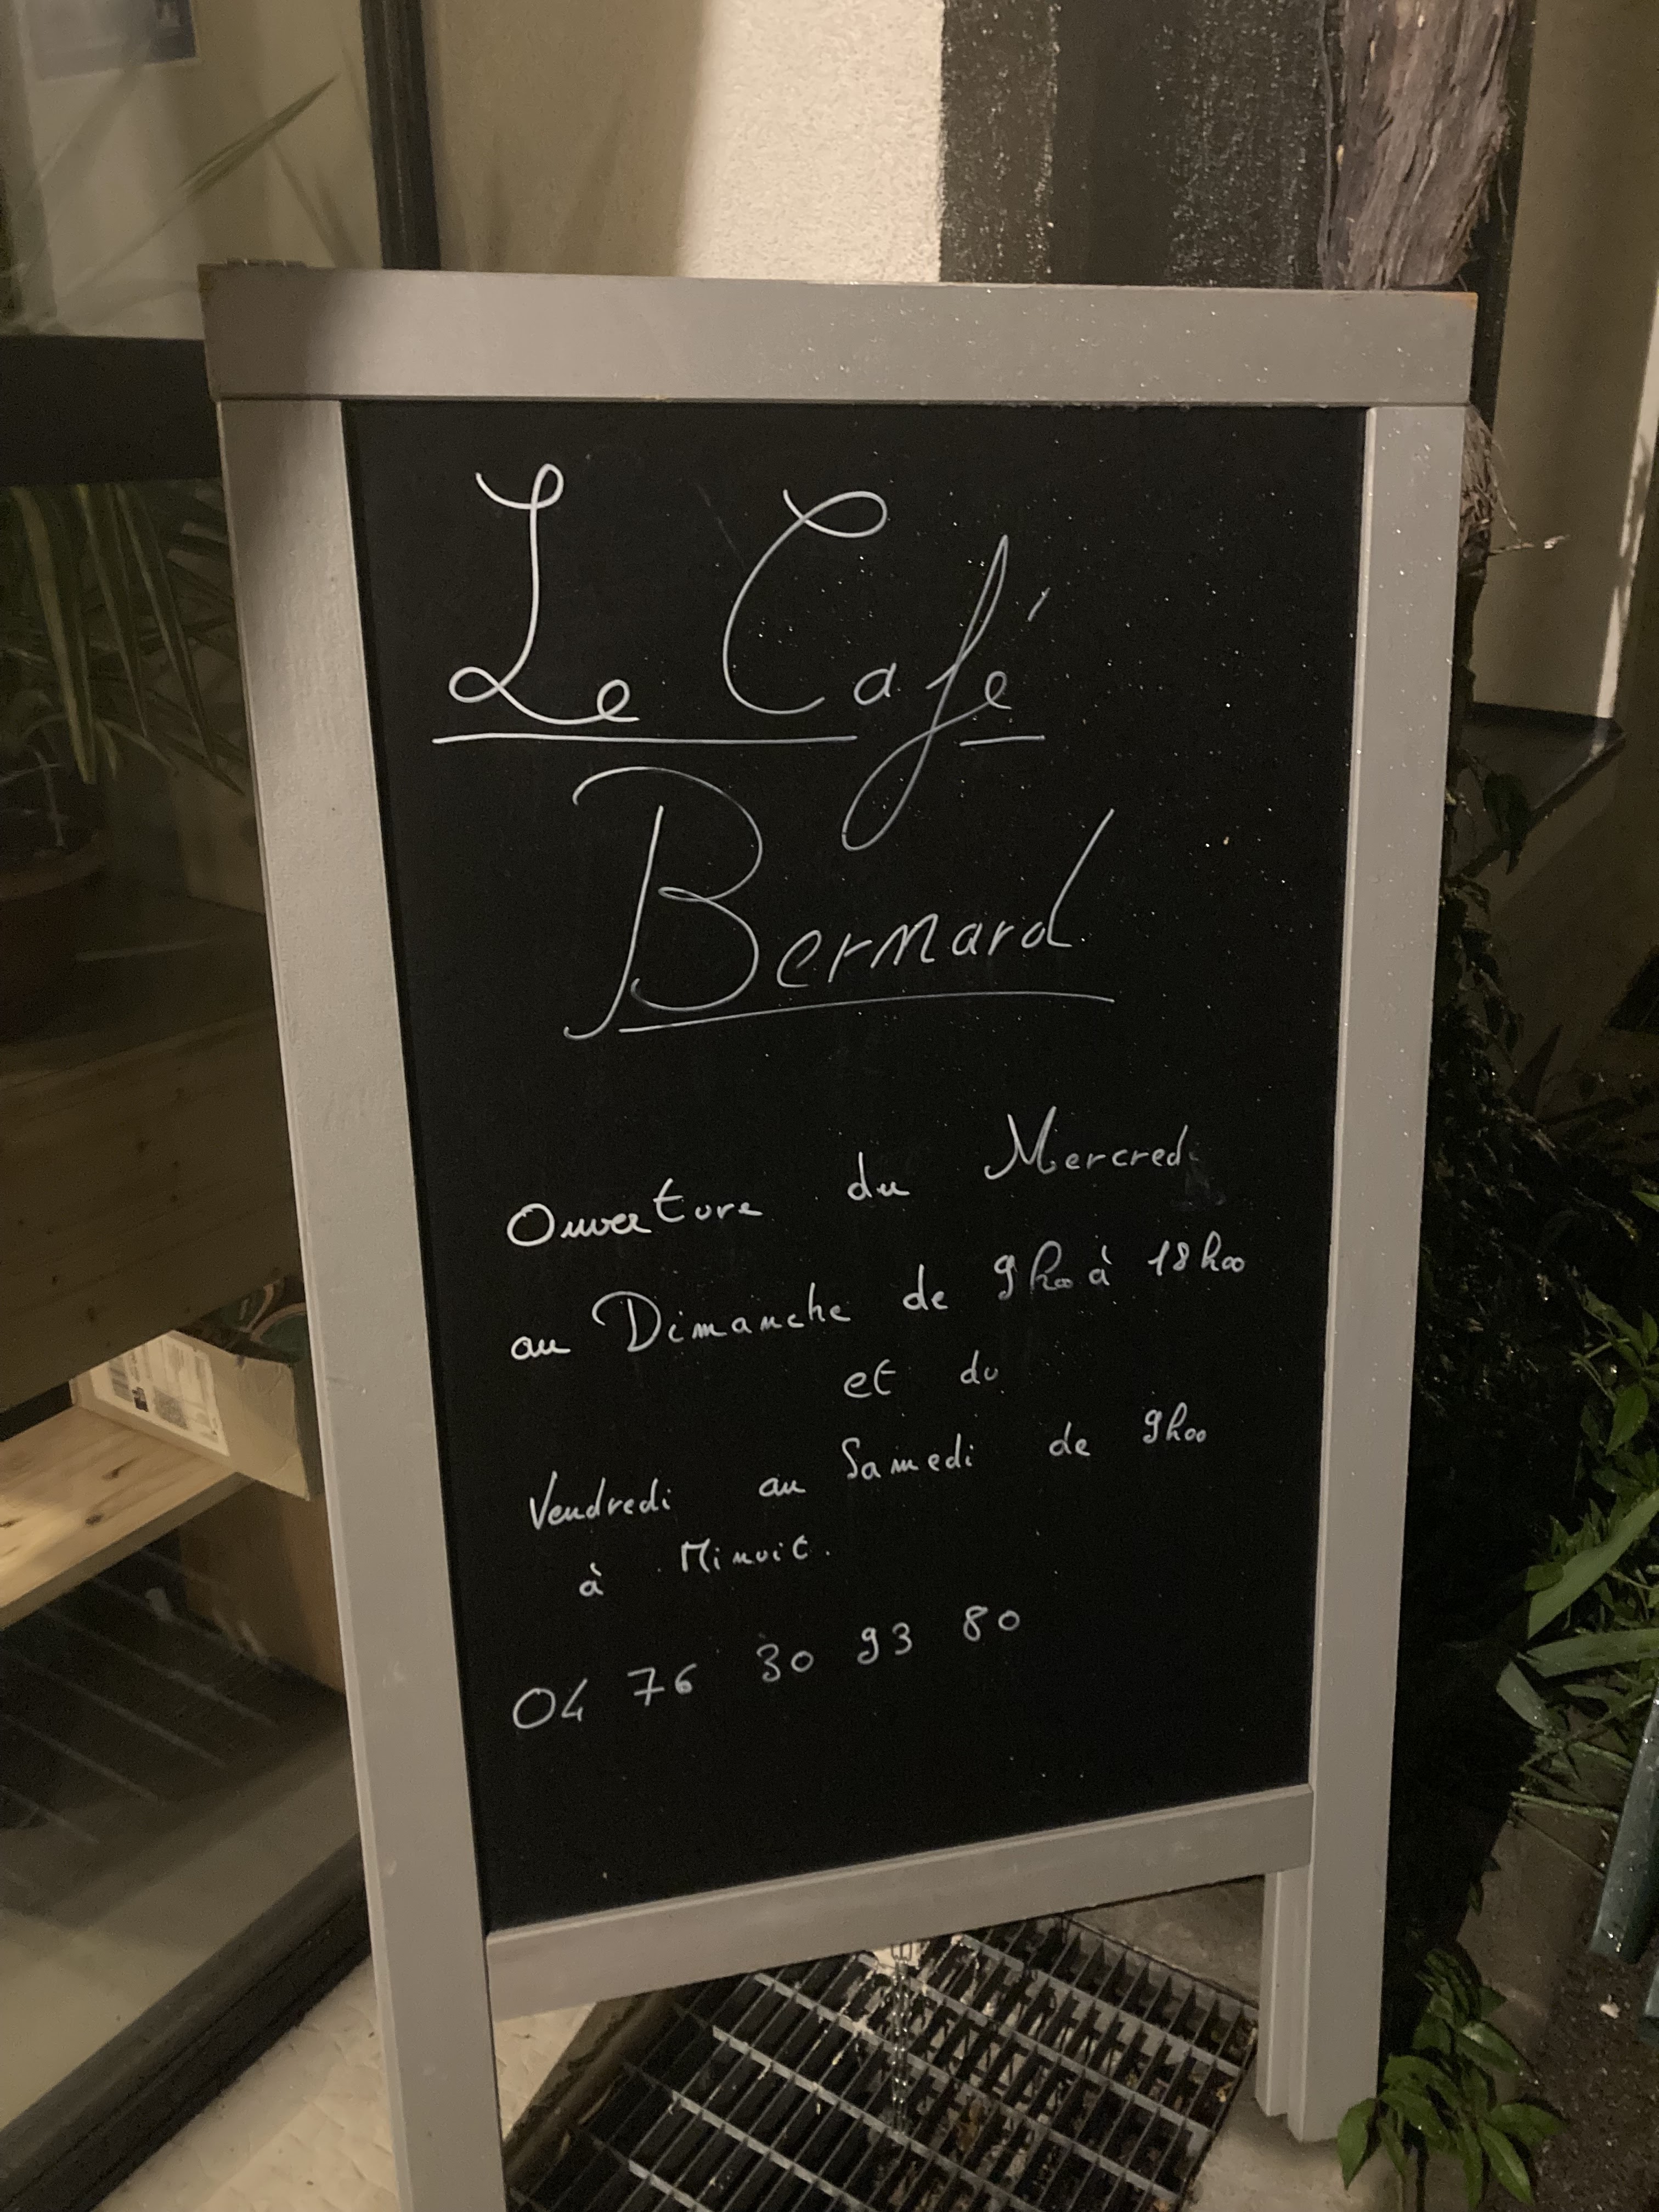 Le Café
Bernard
Ouverture du Mercredi
au Dimanche de 9h00 à 18h00
et du
Vendredi au Samedi de 9h00
à Minuit.
04 76 30 93 80